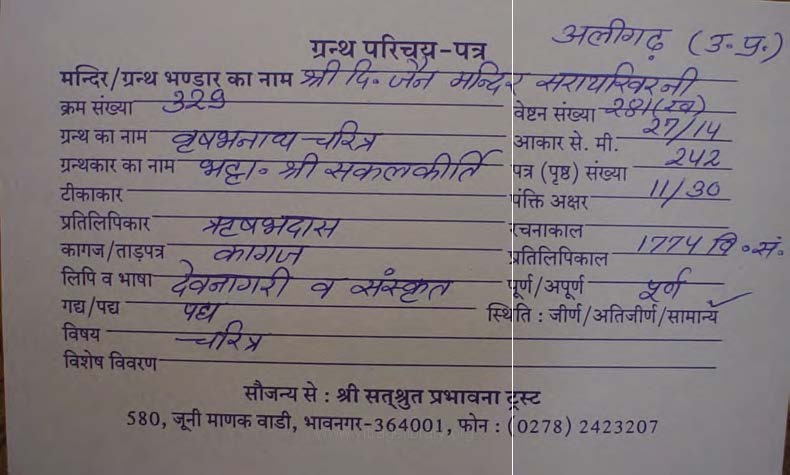 अलीगढ़ (उ. प्र.)
ग्रन्थ परिचय-पत्र
मन्दिर/ग्रन्थ भण्डार का नाम श्री दि. जैन मन्दिर सरायखिरनी
क्रम संख्या 329 वेष्टन संख्या 281(ख)
ग्रन्थ का नाम वृषभनाथ-चरित्र आकार से. मी. 27/14
ग्रन्थकार का नाम भट्टा. श्री सकलकीर्ति पत्र (पृष्ठ) संख्या 242
टीकाकार पंक्ति अक्षर 11/30
प्रतिलिपिकार ऋषभदास रचनाकाल
कागज/ताड़पत्र कागज प्रतिलिपिकाल 1774 वि. सं.
लिपि व भाषा देवनागरी व संस्कृत पूर्ण/अपूर्ण पूर्ण
गद्य/पद्य पद्य स्थिति : जीर्ण/अतिजीर्ण/सामान्य ✓
विषय चरित्र
विशेष विवरण
सौजन्य से : श्री सत्श्रुत प्रभावना ट्रस्ट
580, जूनी माणक वाडी, भावनगर-364001, फोन : (0278) 2423207